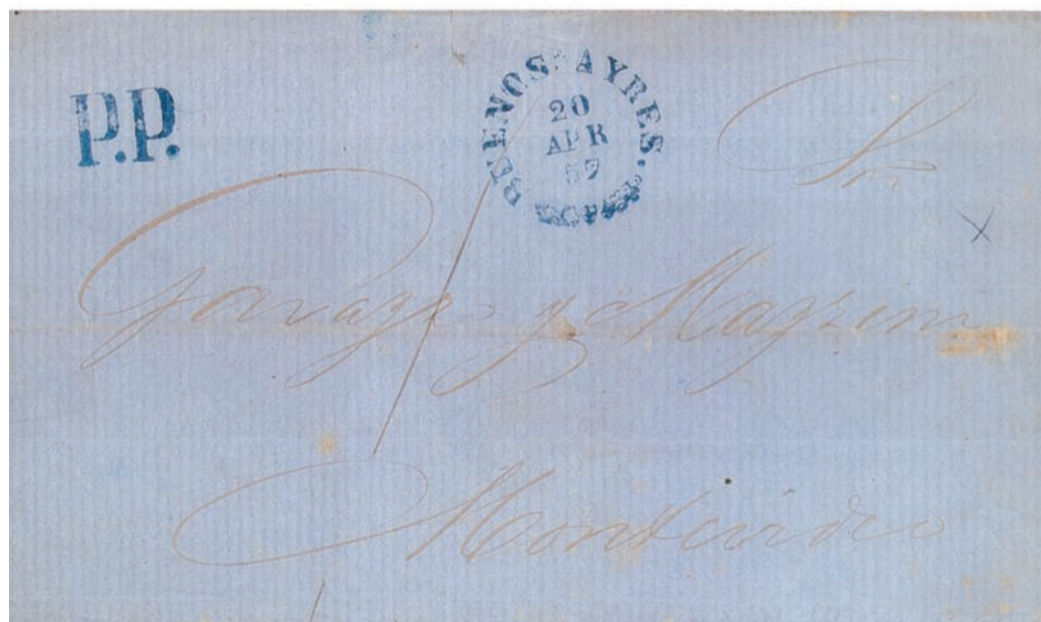 P.P.
BUENOS AYRES.
20
APR
59
Sres
Gavazo y Mazzini
Montevideo